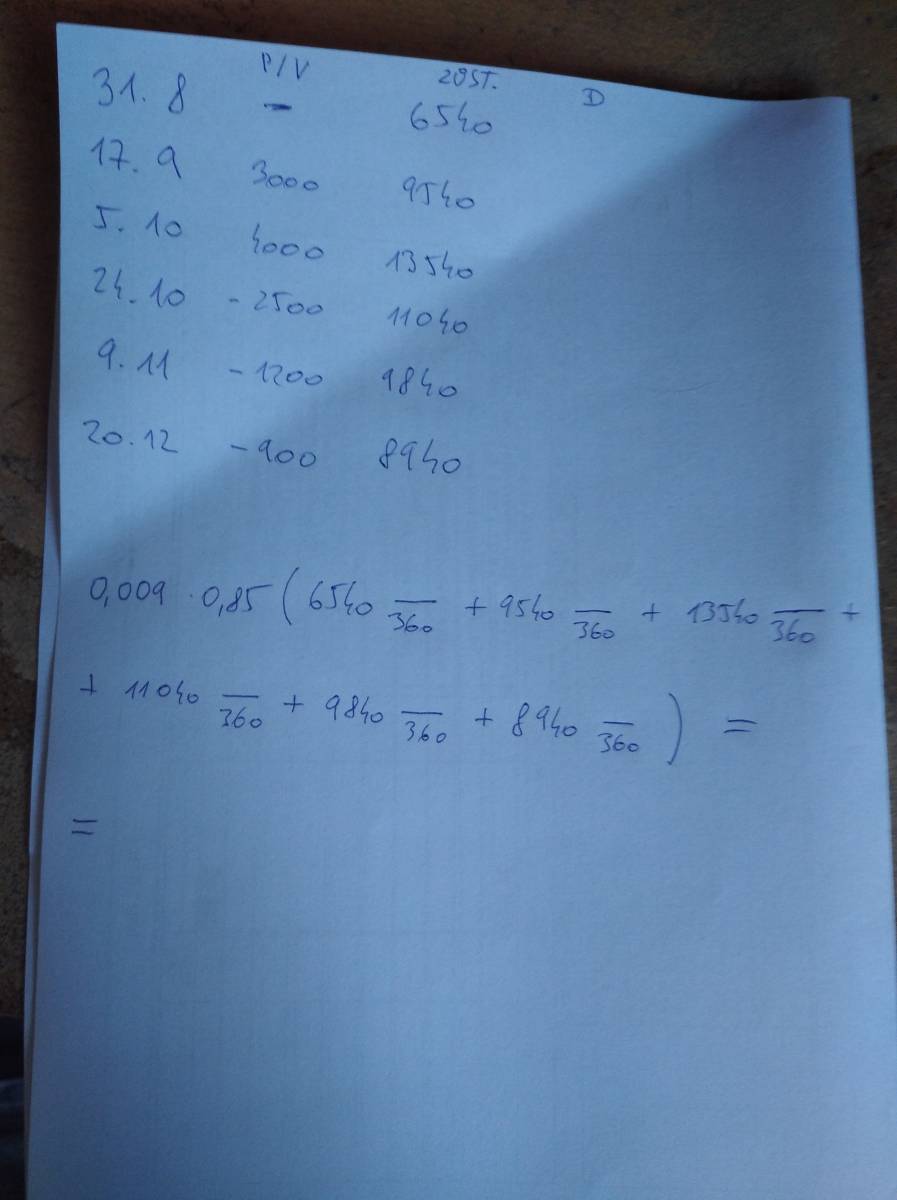 P/V ZOST. D
31. 8 - 6540
17. 9 3000 9540
5. 10 4000 13540
24. 10 - 2500 11040
9. 11 - 1200 9840
20. 12 - 900 8940
0,009 · 0,85 ( 6540 —/360 + 9540 —/360 + 13540 —/360 +
+ 11040 —/360 + 9840 —/360 + 8940 —/360 ) =
=